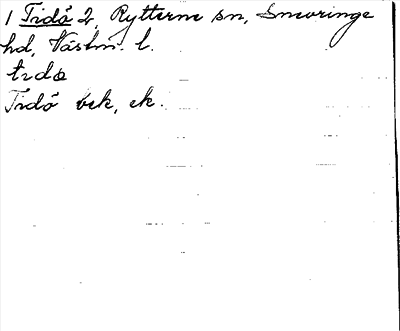 1 Tidö 2, Rytterne sn, Snevringe
hd, Västm. l.
tɩdɷ
Tidö bek, ek.